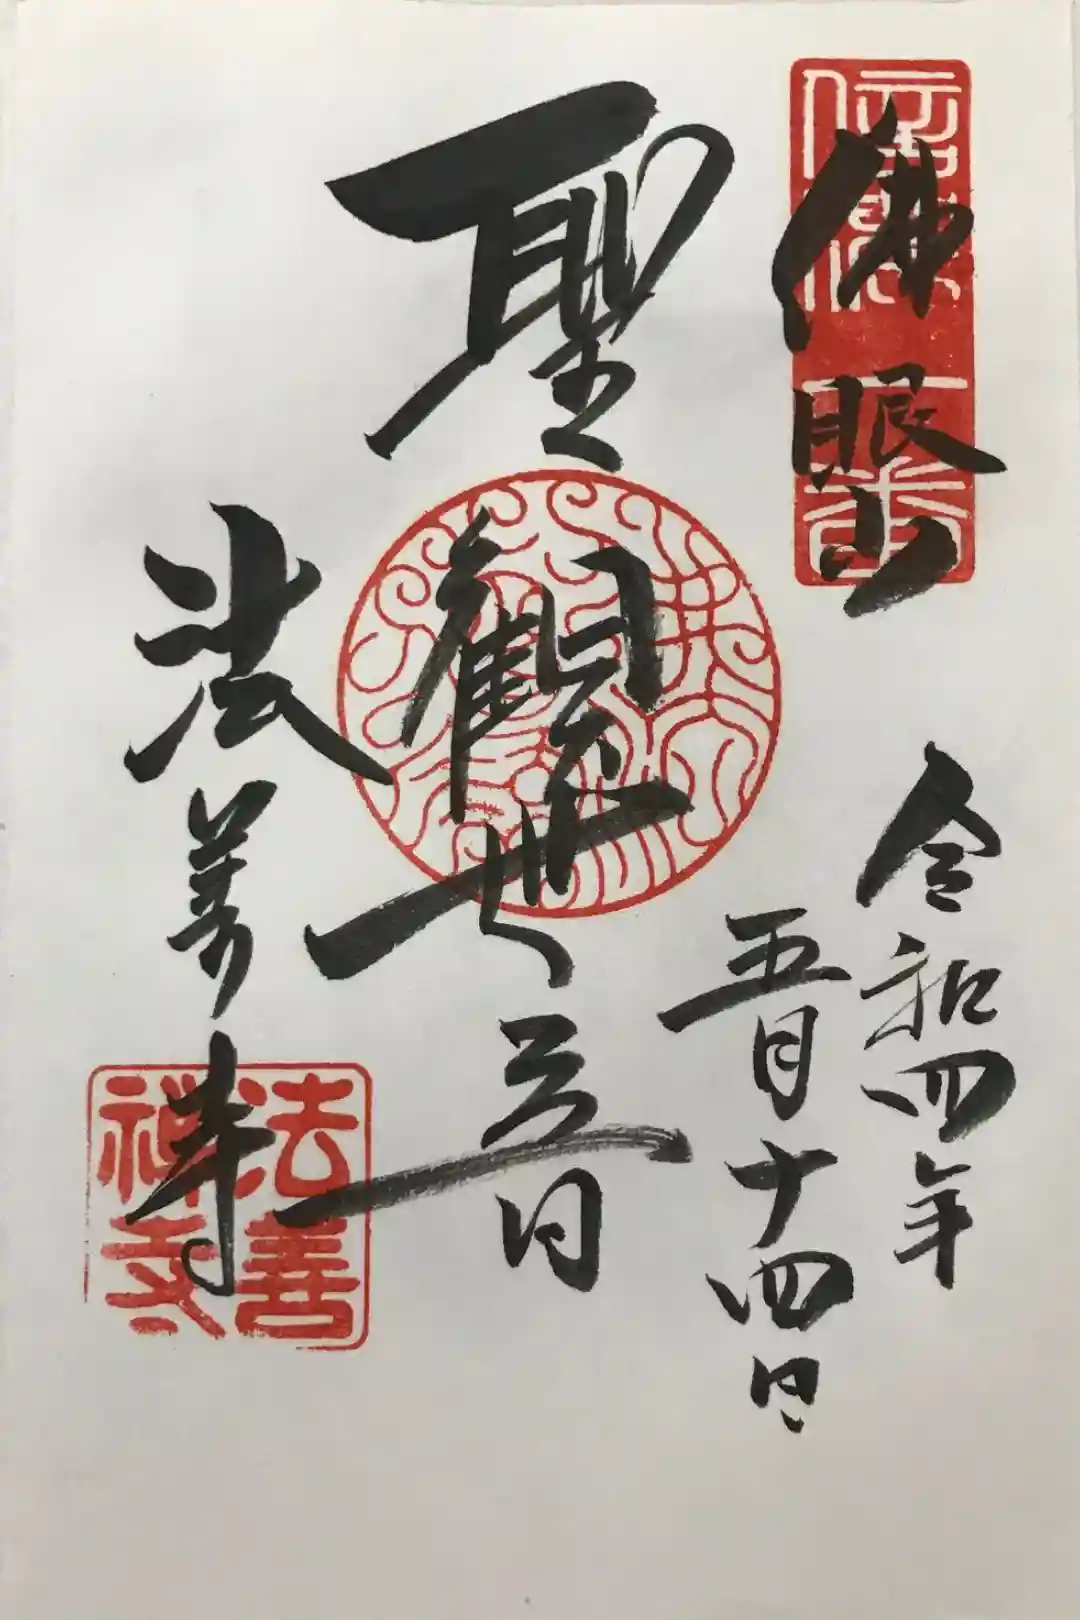 佛眼山
令和四年
五月十四日
聖觀世音
法善寺
法善
禅寺